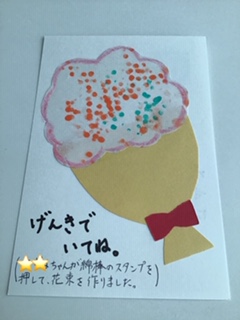 げんきで
いてね。
(ちゃんが綿棒のスタンプを
押して、花束を作りました。)